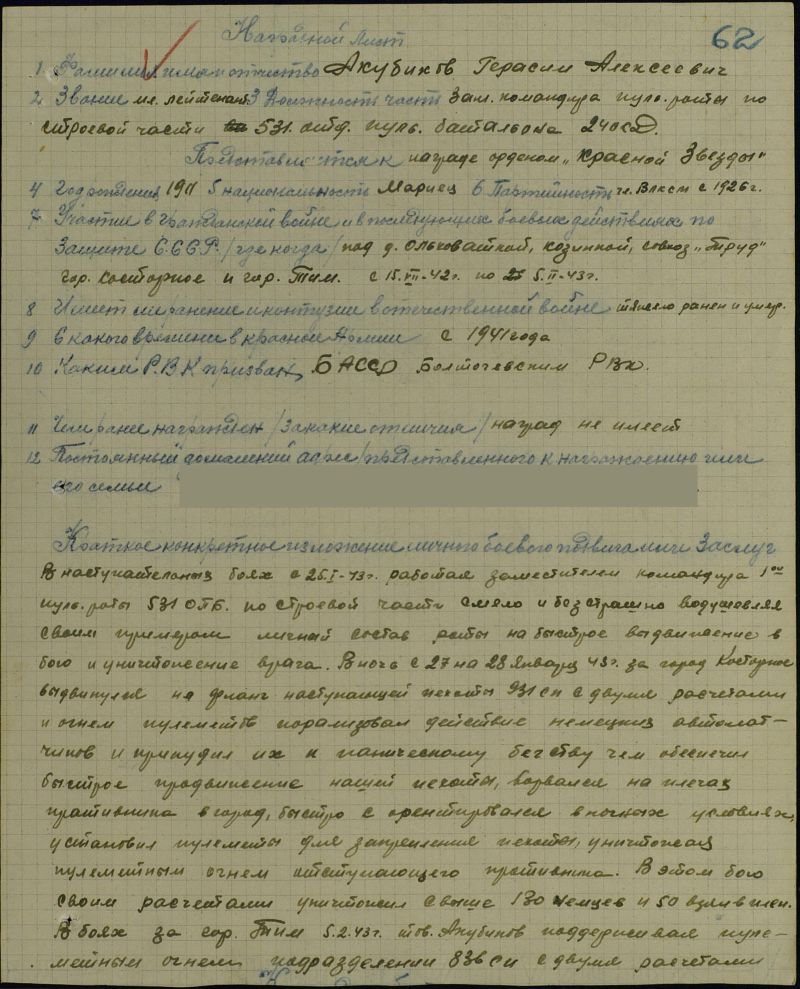 Наградной лист
62
1 Фамилия имя отчество Акубиков Герасим Алексеевич
2 Звание мл. лейтенант 3 Должность часть Зам. командира пуль. роты по
строевой части 531. отд. пуль. батальона 240 сД.
Представляется к награде орденом „Красной Звезды"
4 Год рождения 1911 5 национальность Мариец 6 Партийность чл. Влксм с 1926 г.
7 Участие в гражданской войне и в последующих боевых действиях по
Защите С.С.С.Р. / где когда / под д. Ольховаткой, козинкой, совхоз „Труд"
гор. Косторное и гор. Тим. с 15.VII-42 г. по 5.II-43 г.
8 Имеет ли ранение и контузии в отечественной войне тяжело ранен и умер.
9 С какого времени в красной Армии с 1941 года
10 Каким Р.В.К призван, БАССР Болточевским РВк.
11 Чем ранее награжден / за какие отличия / наград не имеет
12 Постоянный домашний адрес / представленного к награждению или
его семьи
Краткое конкретное изложение личного боевого подвига или Заслуг
В наступательных боях с 25.I-43 г. работая заместителем командира 1ой
пуль. роты 531 ОПБ. по строевой части смело и безстрашно водушевляя
своим примером личный состав роты на быстрое выдвижение в
бою и уничтожение врага. В ночь с 27 на 28 Января 43 г. за город Косторное
выдвинулся на фланг наступающей пехоты 931 сп с двумя расчетами
и огнем пулеметов порализовал действие немецких автомат-
чиков и принудил их к паническому бегству чем обеспечил
быстрое продвижение нашей пехоты, ворвался на плечах
противника в город, быстро с орентировался в ночных условиях,
установил пулеметы для закрепления пехоты, уничтожая
пулеметным огнем отступающего противника. В этом бою
своим расчетами уничтожил свыше 130 немцев и 50 взял в плен.
В боях за гор. Тим 5.2.43 г. тов. Акубиков поддерживая пуле-
метным огнем подразделении 836 сп с двумя расчетами